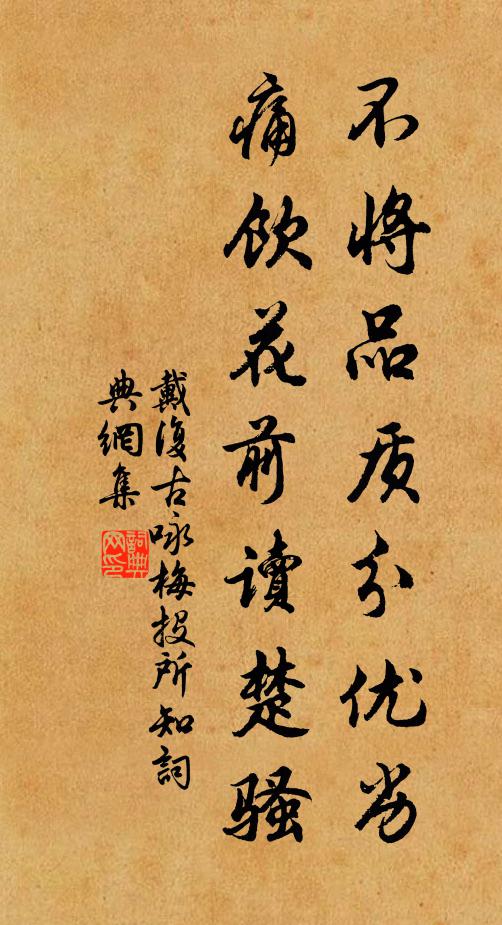 不将品质分优劣
痛饮花前读楚骚
戴復古咏梅投所知詞
典網集
詞典网印